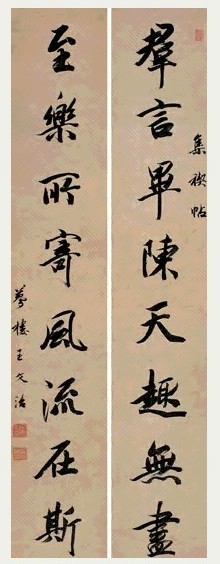 群言畢陳天趣無盡
集禊帖
至樂所寄風流在斯
夢樓王文治